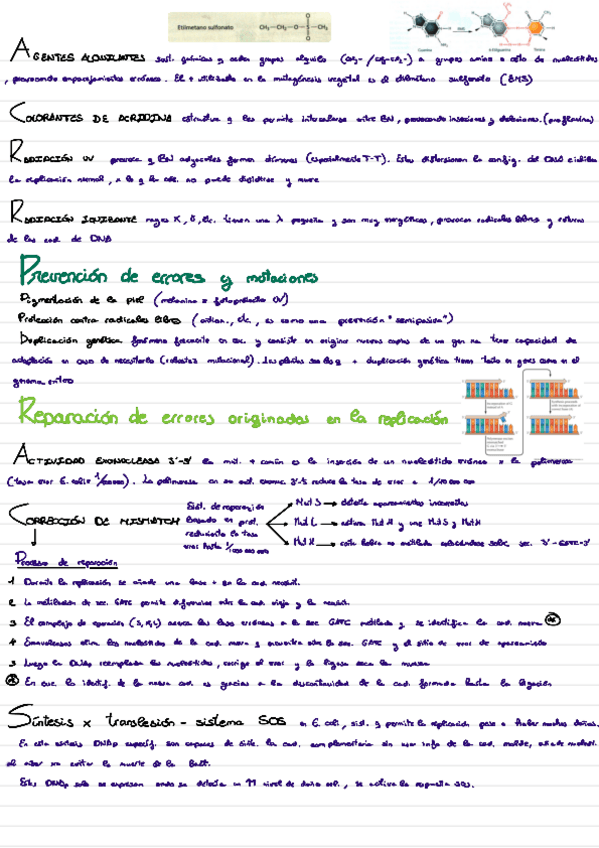 Etilmetano sulfonato CH₃-CH₂-O-S-CH₃
Guanina Timina
AGENTES ALQUILANTES sust. químicas q ceden grupos alquilo (CH₃- /CH₃-CH₂-) a grupos amino o ceto de nucleótidos
, provocando emparejamientos erróneos. El + utilizado en la mutagénesis vegetal es el sulfonato (EMS)
COLORANTES DE ACRIDINA estructura q les permite intercalarse entre BN, provocando inserciones y deleciones. (proflavina)
RADIACIÓN UV provoca q BN adyacentes formen dímeros (especialmente T-T). Estos distorsionan la config. del DNA e inhiben
la replicación normal, x lo q la cél. no puede dividirse y muere
RADIACIÓN IONIZANTE rayos X, etc. tienen una λ pequeña y son muy energéticos, provocan radicales libres y roturas
de las cad. de DNA
Prevención de errores y mutaciones
Pigmentación de la piel (melanina = fotoprotección UV)
Protección contra radicales libres (etc., es como una prevención "semipasiva")
Duplicación genética fenómeno frecuente en y consiste en originar nuevas copias de un gen para tener capacidad de
adaptación en caso de necesitarlo (robustez mutacional). Las plantas son las q + duplicación genética tienen tanto en genes como en el
genoma entero
Reparación de errores originados en la replicación
ACTIVIDAD EXONUCLEASA 3'-5' la mut. + común es la inserción de un nucleótido erróneo x la polimerasa
(tasa error E. coli = ). La polimerasa con su act. exonuc. 3'-5' reduce la tasa de error a
CORRECCIÓN DE MISMATCH
Sist. de reparación
basado en prot.
reduciendo la tasa
error hasta
Mut S → detecta apareamientos incorrectos
Mut L → activa Mut H y une Mut S y Mut H
Mut H → corta hebra no metilada sec. 5'-GATC-3'
Proceso de reparación
1 Durante la replicación se añade una base + en la cad. recién sint.
2 La metilación de sec. GATC permite diferenciar entre la cad. vieja y la recién
3 El complejo de reparación (S, H, L) acerca las bases erróneas a la sec GATC metilada y se identifica la cad. nueva
4 Exonucleasas elimina los nucleótidos de la cad. nueva q encuentra entre la sec. GATC y el sitio de error de apareamiento
5 Luego la DNAp reemplaza los nucleótidos, corrige el error y la ligasa sella la muesca
En euc. la identif. de la nueva cad. es gracias a la discontinuidad de la cad. formada hasta la ligación
Síntesis x translesión - sistema SOS en E. coli, sist. q permite la replicación pese a haber muchos daños.
En esta síntesis DNAp específ. son capaces de sint. la cad. complementaria sin usar info de la cad. molde, añade nucleót.
al azar xa evitar la muerte de la bact.
Estas DNAp solo se expresan cuando se detecta un ↑↑ nivel de daño cel., se activa la respuesta SOS.